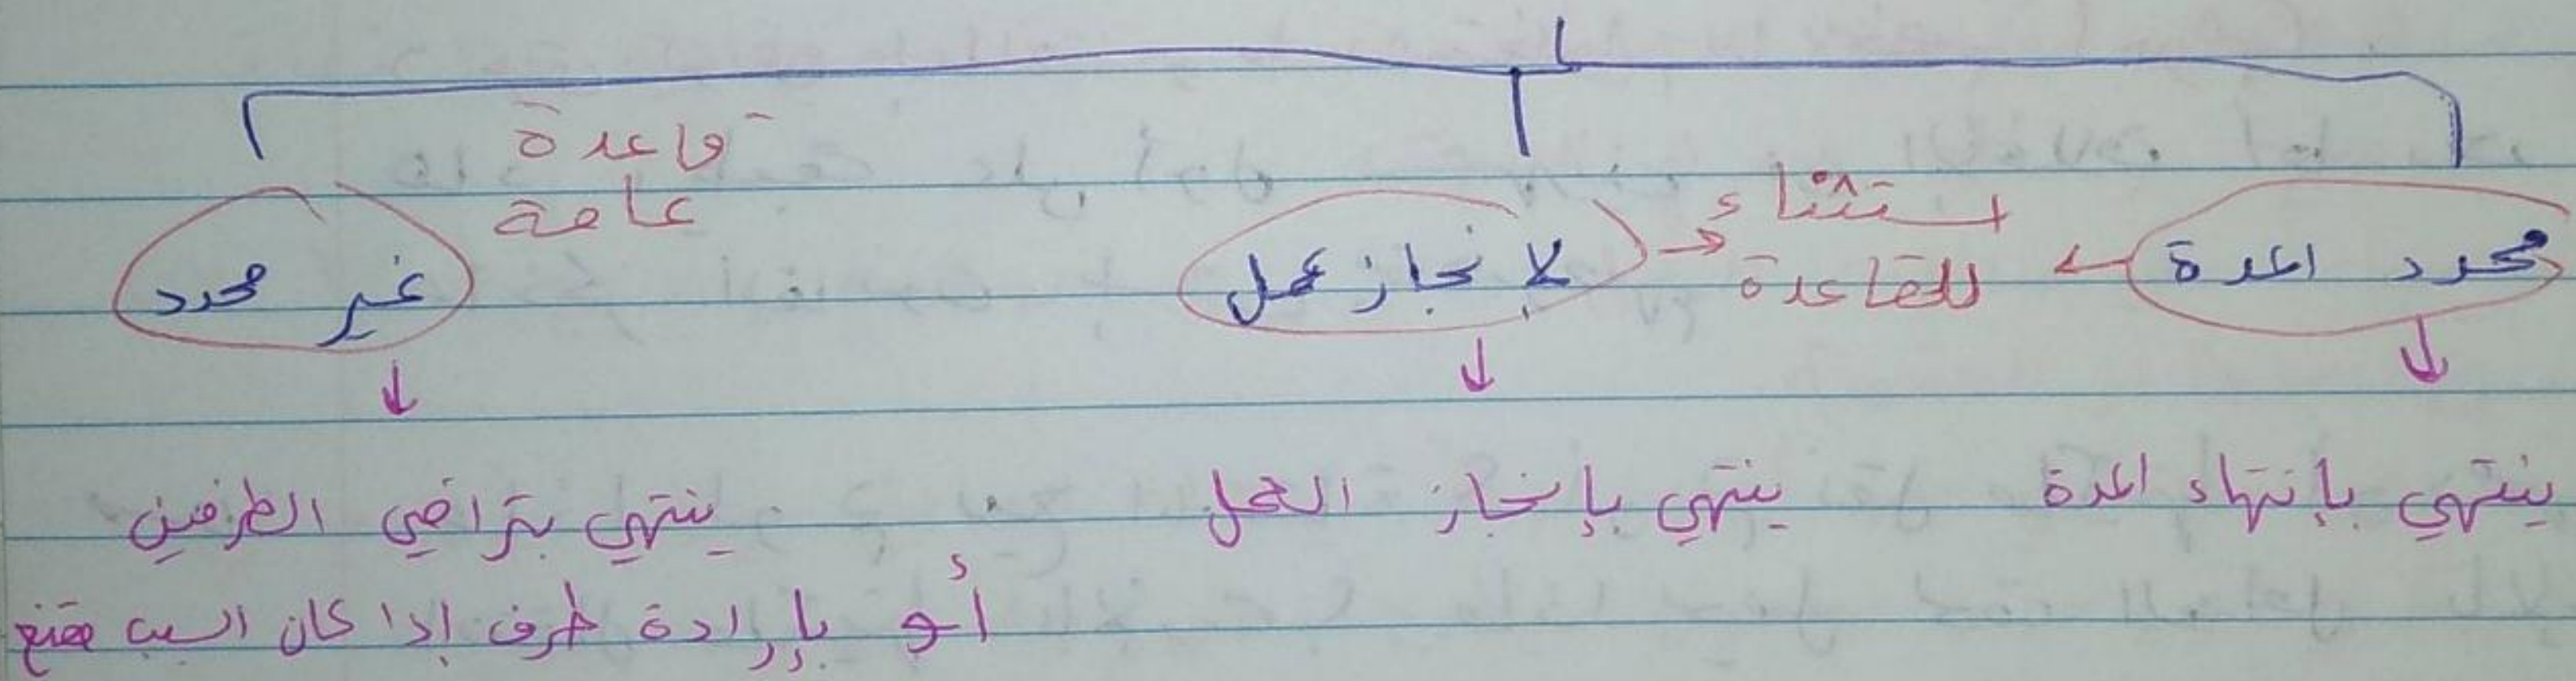 قاعدة
عامة
استثناء
للقاعدة
محدد المدة
لإنجاز عمل
غير محدد
ينتهي بإنتهاء المدة
ينتهي بإنجاز العمل
ينتهي بتراضي الطرفين
أو بإرادة طرف إذا كان السبب مقنع